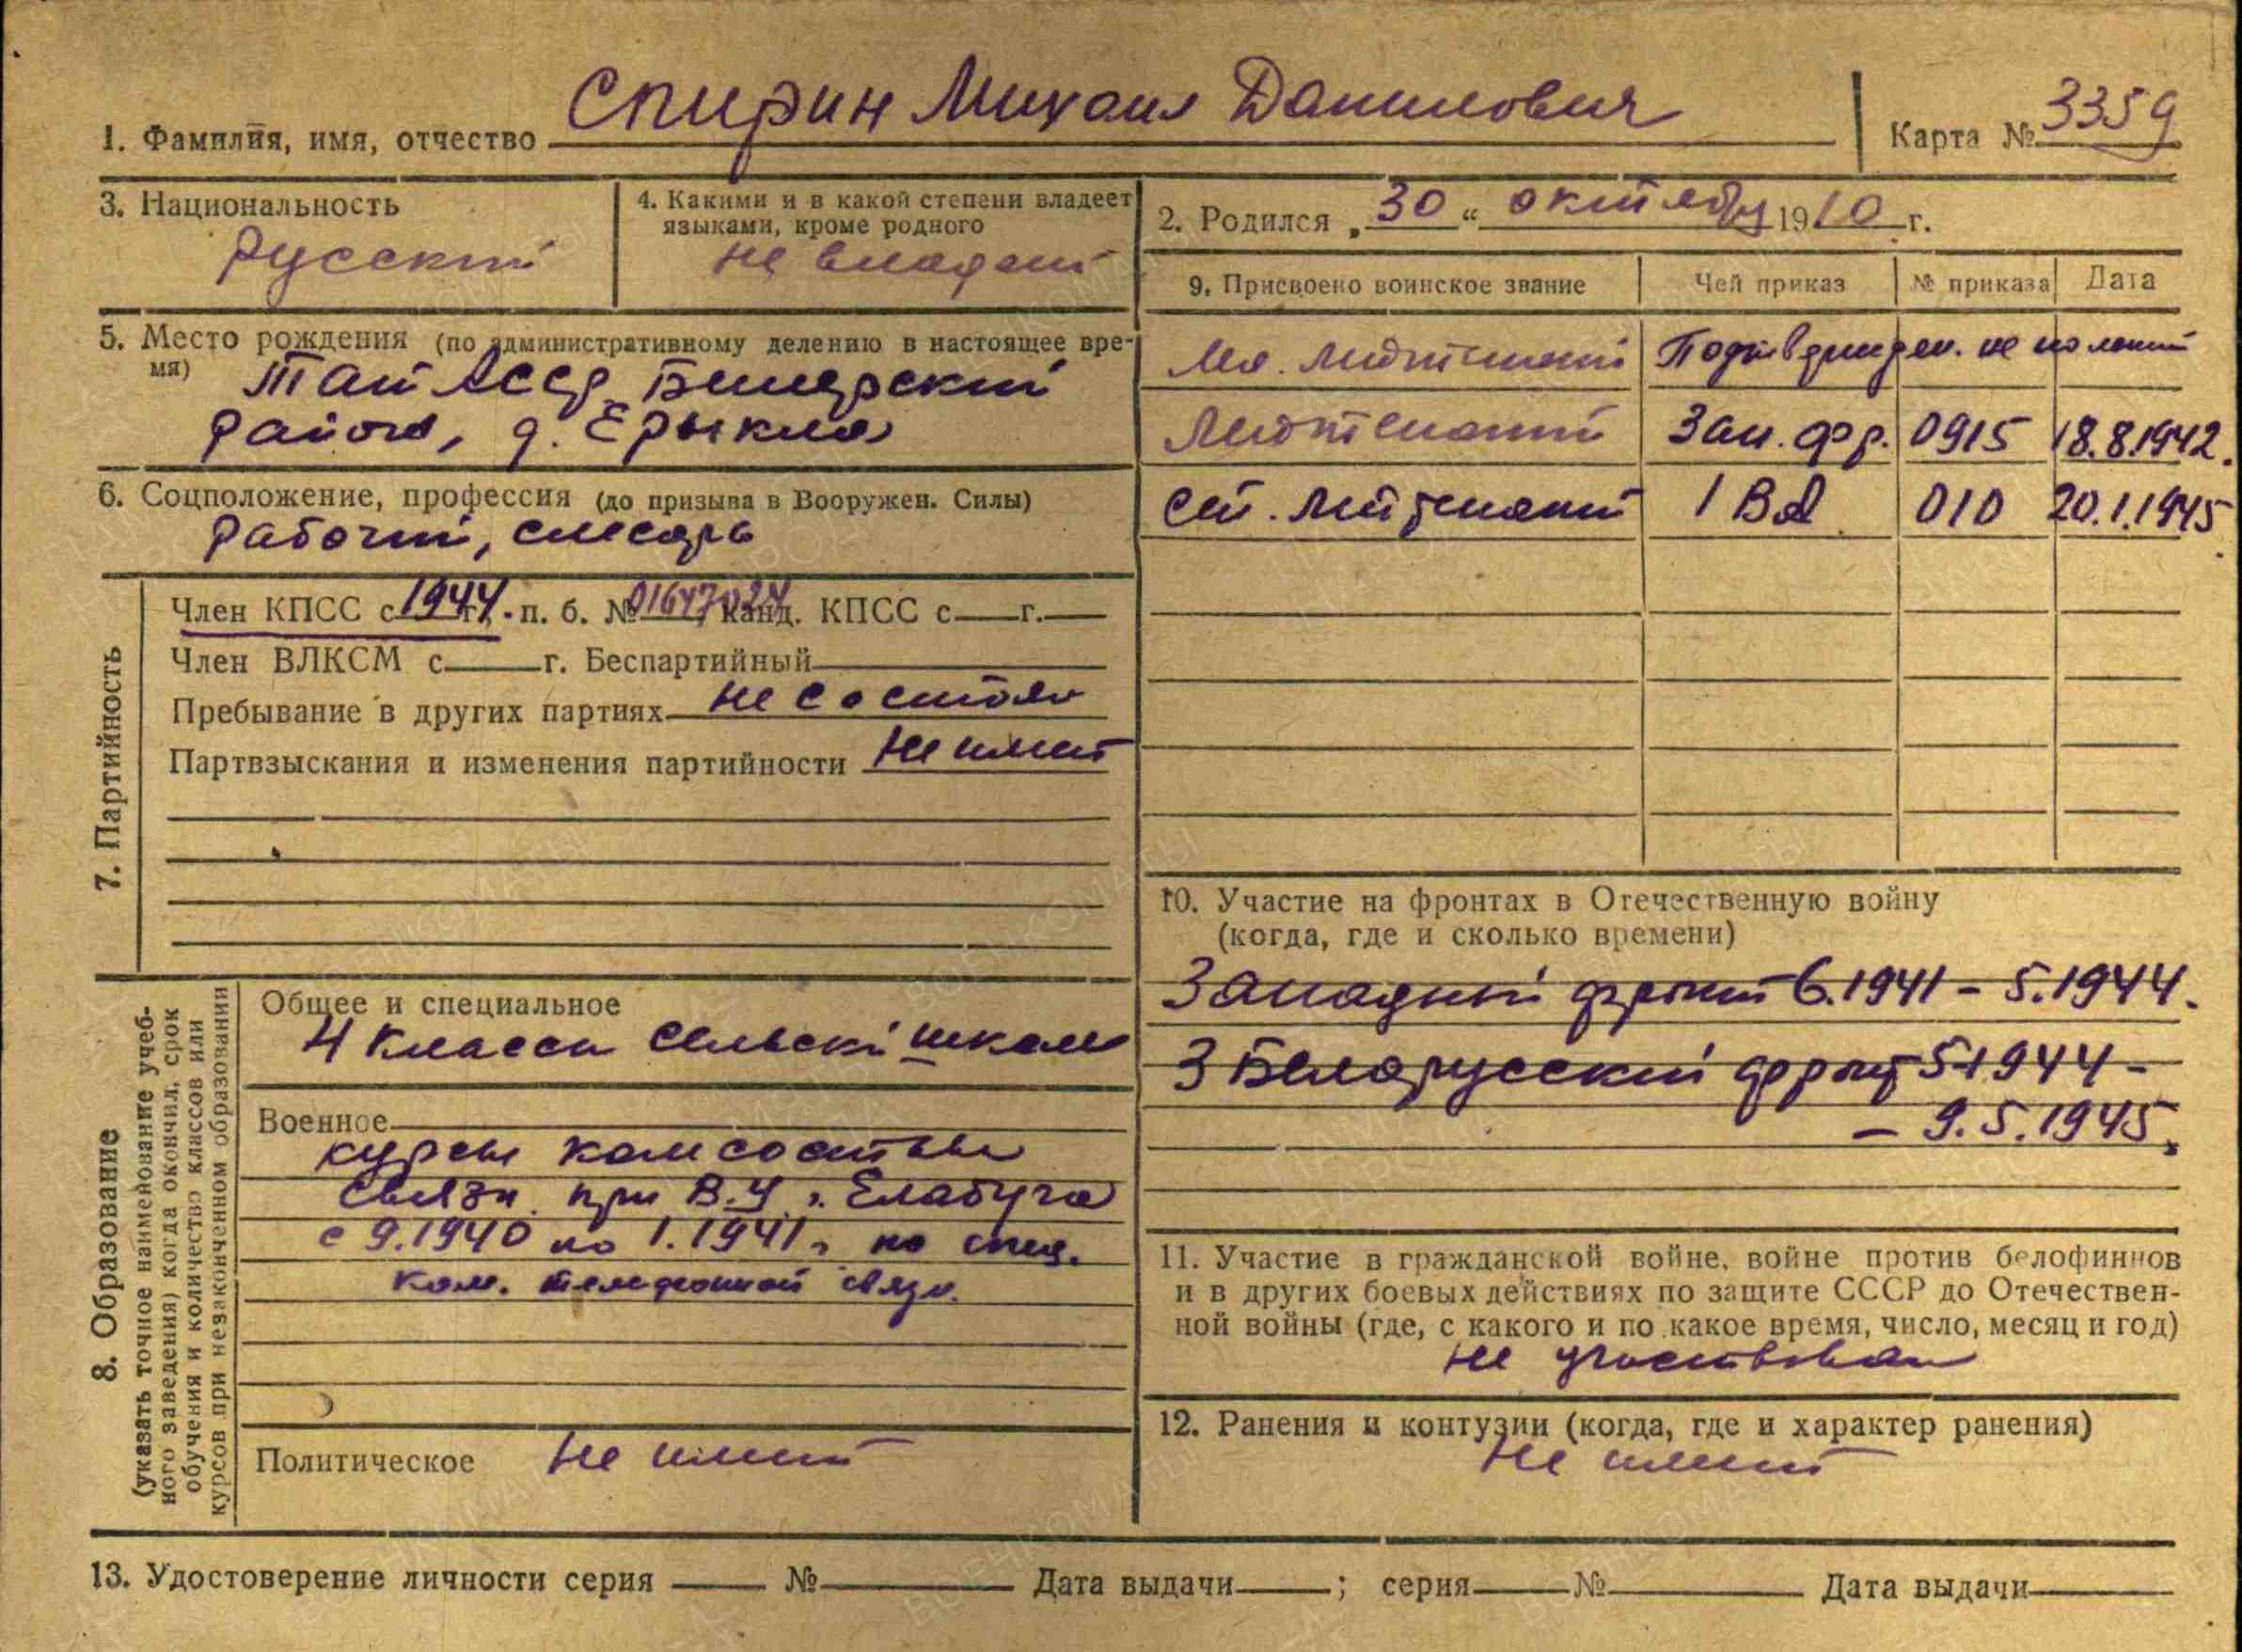 1. Фамилия, имя, отчество Спирин Михаил Данилович
Карта № 3359
3. Национальность
русский
4. Какими и в какой степени владеет
языками, кроме родного
не владеет
2. Родился „30“ октября 1910 г.
5. Место рождения (по административному делению в настоящее вре-
мя) Тат АССР, Билярский
район, д. Ерыкла
6. Соцположение, профессия (до призыва в Вооружен. Силы)
рабочий, слесарь
7. Партийность
Член КПСС с 1944 г. п. б. № 01647024 канд. КПСС с г.
Член ВЛКСМ с г. Беспартийный
Пребывание в других партиях не состоял
Партвзыскания и изменения партийности не имеет
8. Образование
(указать точное наименование учеб-
ного заведения) когда окончил, срок
обучения и количество классов или
курсов при незаконченном образовании
Общее и специальное
4 класса сельской школы
Военное
курсы комсостава
связи при В.У. г. Елабуга
с 9.1940 по 1.1941 г. по спец.
ком. телефонной связи.
Политическое не имеет
9. Присвоено воинское звание Чей приказ № приказа Дата
Мл. лейтенант Подтвержден. не имеет
Лейтенант Зап. фр. 0915 18.8.1942.
Ст. лейтенант 1 ВА 010 20.1.1945
10. Участие на фронтах в Отечественную войну
(когда, где и сколько времени)
Западный фронт 6.1941 – 5.1944.
3 Белорусский фронт 5.1944 –
– 9.5.1945.
11. Участие в гражданской войне, войне против белофиннов
и в других боевых действиях по защите СССР до Отечествен-
ной войны (где, с какого и по какое время, число, месяц и год)
не участвовал
12. Ранения и контузии (когда, где и характер ранения)
не имеет
13. Удостоверение личности серия № Дата выдачи ; серия № Дата выдачи